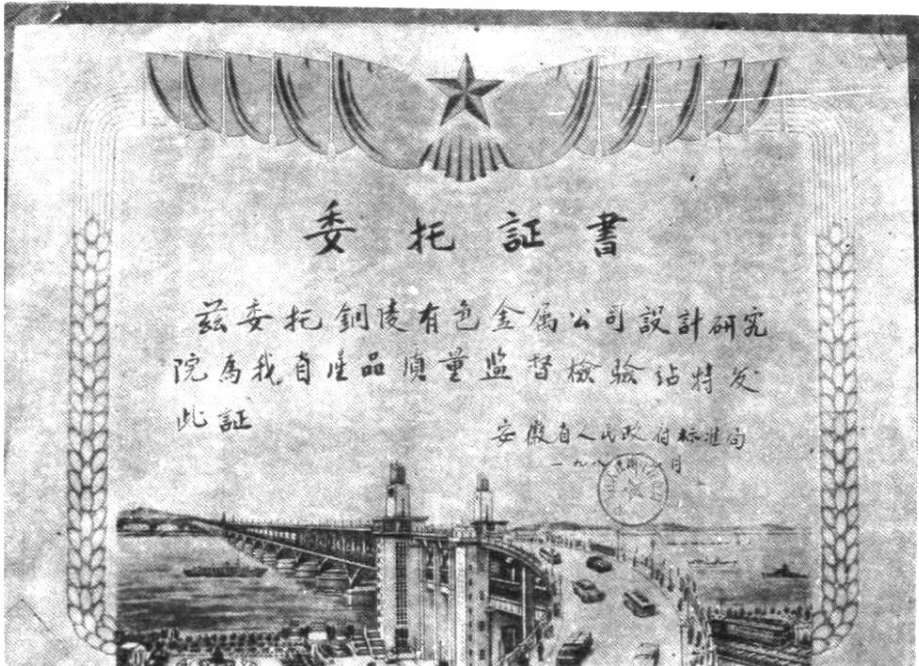 委托証書
兹委托銅陵有色金属公司設計研究
院為我省産品質量监督檢驗站特发
此証
安徽省人民政府标准局
一九八 月